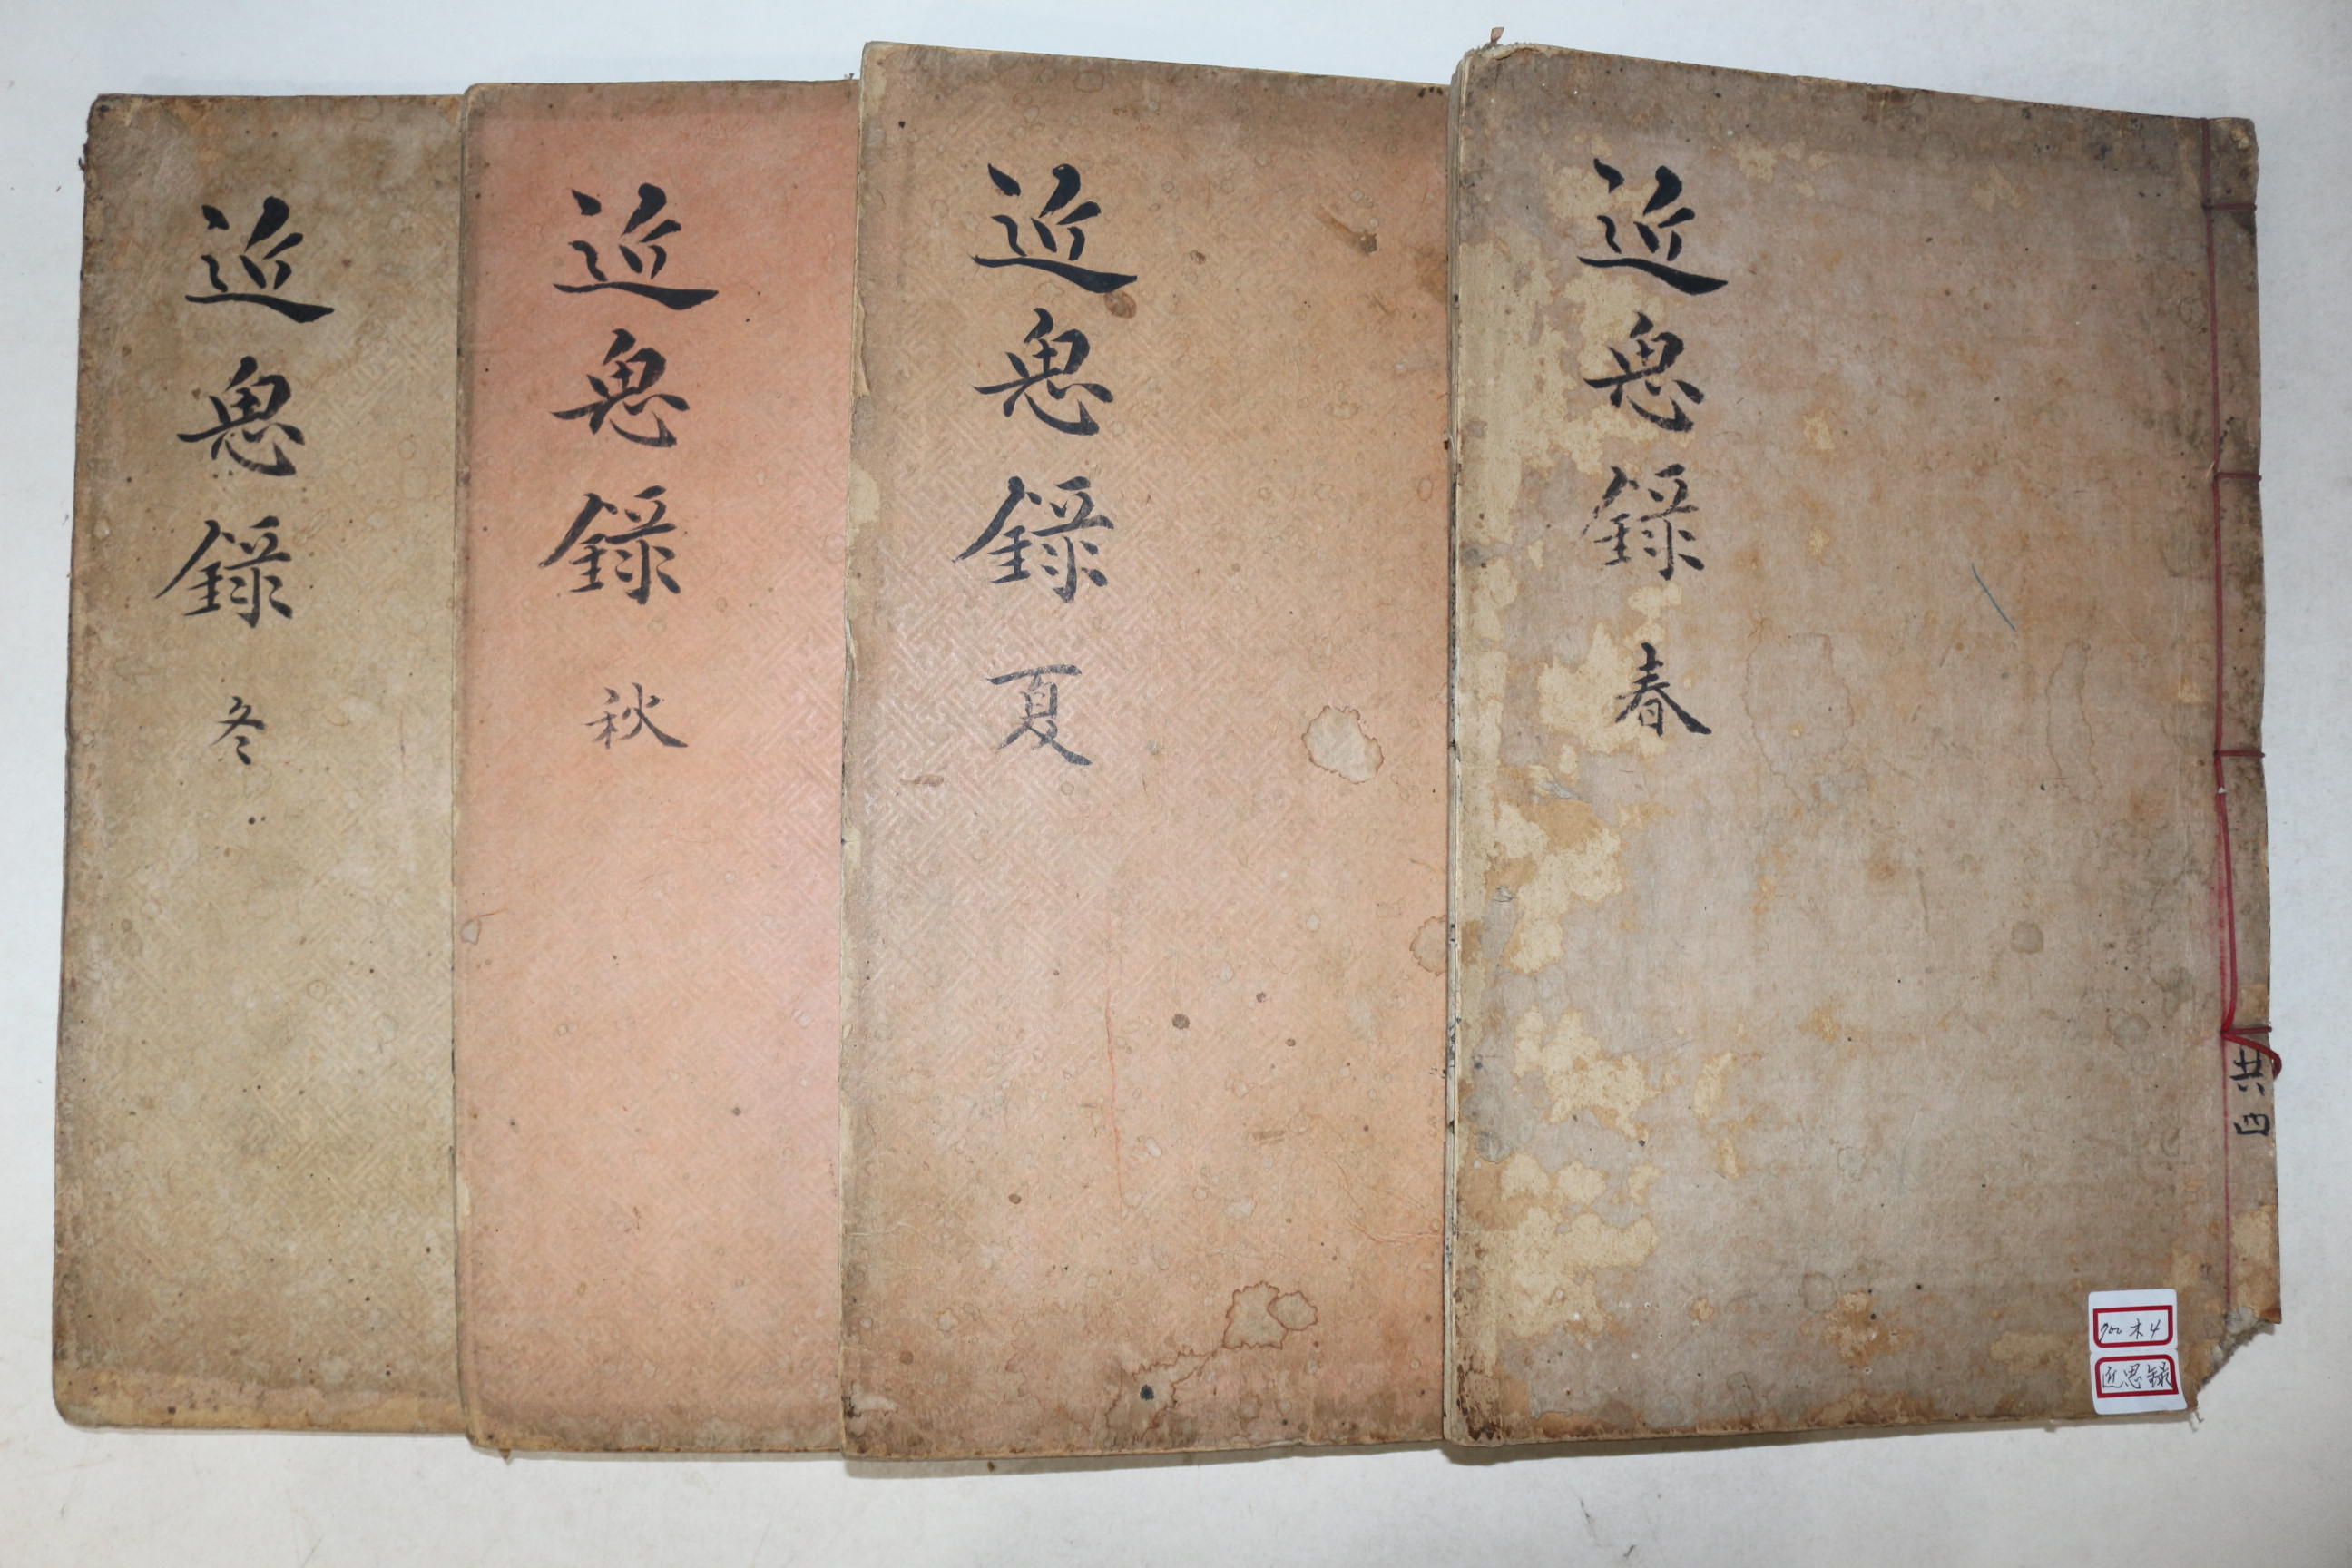 近思錄 春
共四
702 木 4
近思錄
近思錄 夏
近思錄 秋
近思錄 冬